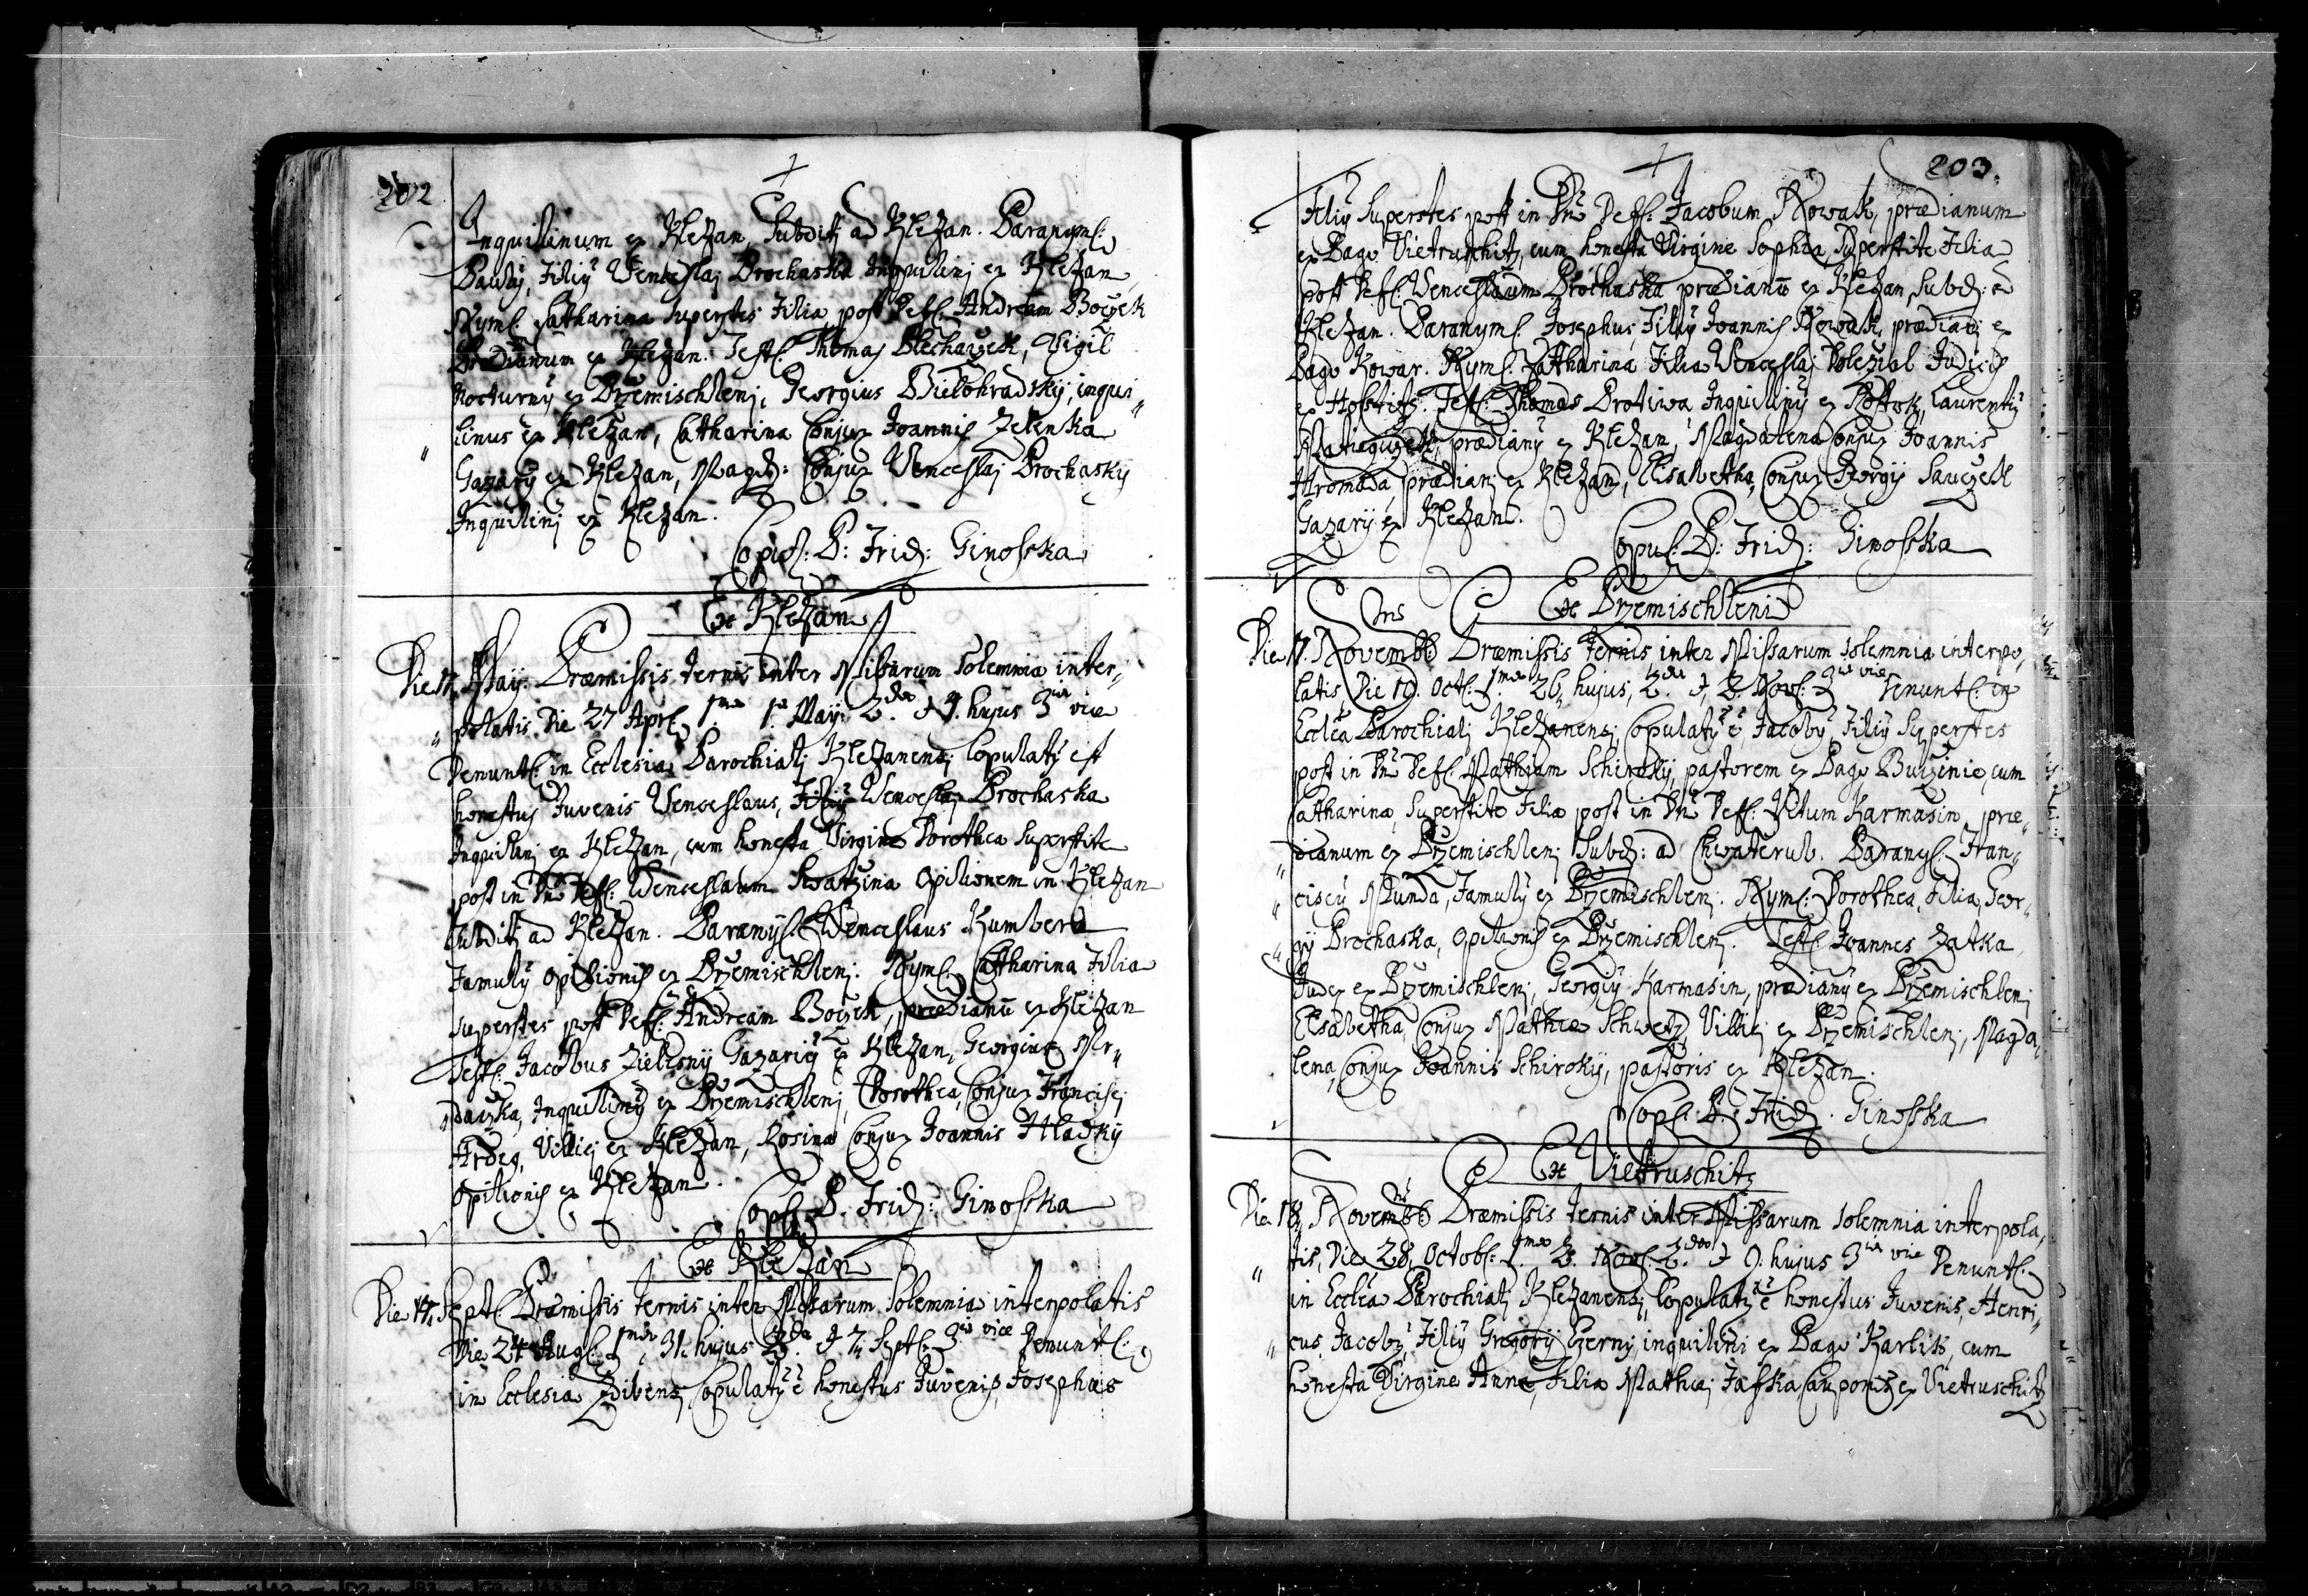 202
Inquilinum ex Kletzan, Subditj ad Kletzan. Paranymf:
Pauly, Filiÿ Wenceslaj Prochaska Inquilinj ex Kletzan,
Nymf: Catharina superstes Filia post Deff: Andream Boczek
Prædianum ex Kletzan. Testf: Thomas Blechaczek, Vigil
Nocturnÿ ex Przemischlenj, Georgius Bielohradskÿ, inqui„
linus ex Kletzan, Catharina Conjux Joannis Zelenka
Gazarÿ ex Kletzan, Magd: Conjux Wenceslaj Prochaskÿ
Inquilinj ex Kletzan.
Copul: P: Frid: Ginofska
Ex Kletzan
Die 17, Maÿ. Præmissis ternis inter Missarum Solemnia inter„
„ polatis Die 27 Aprl 1ma 1. Maÿ: 2.da & 9. hujus 3tia vice
Denuntf: in Ecclesia Parochialj Kletzanensj Copulatÿ est
honestus Juvenis Wenceslaus, Filiÿ Wenceslaj Prochaska
Inquilinj ex Kletzan, cum honesta Virgine Dorothea superstite
post in Dno Deff: Wenceslaum Swatzina Opilionem in Kletzan
Subditj ad Kletzan. Paranÿf: Wenceslaus Kumbera
Famulÿ Opilionis ex Przemischlenj. Nymf: Catharina Filia
superstes post Deff: Andream Boczek, prædianū ex Kletzan
Testf: Jacobus Zielesnÿ Gazariÿ ex Kletzan, Georgius Mr„
daczka, Inquilinÿ ex Przemischlenj, Dorothea, Conjux Francisci
Ardeg, Villicj ex Kletzan, Rosina Conjux Joannis Hladkÿ
Opilionis ex Kletzan.
Copl: P. Frid: Ginofska
Ex Kletzan
Die 17, Septf: Præmissis ternis inter Missarum Solemnia interpolatis
Die 24 Augf: 1ma, 31. hujus 2da & 7. Septf: 3tia vice Denuntf:
in Ecclesia Zdibensj Copulatÿ ē honestus Juvenis, Josephus
203.
Filiÿ Superstes post in Dno Deff: Jacobum Nowak, prædianum
ex Pago Vietruschitz, cum honesta Virgine Sophia, superstite Filia
post Deff: Wenceslaum Prochaska prædianū ex Kletzan, Subd: ad
Kletzan. Paranymf: Josephus, Filiÿ Joannis Nowak, prædianj ex
Pago Kowar. Nymf: Catharina Filia Wenceslaj Dolezial Judicis
ex Hosstitz. Testf: Thomas Protiwa Inquilinÿ ex Rostok, Laurentÿ
Matieguczek, prædianÿ ex Kletzan, Magdalena Conjux Joannis
Hromada, prædianj ex Kletzan, Elsabetha, Conjux Georgÿ Sauczek
Gazarÿ ex Kletzan.
Copul: P: Frid: Ginofska
Ex Przemischleni
Die 17. Novembris Præmissis ternis inter Missarum solemnia interpo„
latis Die 19. Octf: 1ma 26, hujus, 2.da & 2. Novf: 3tia vice Denuntf: in
Ecclēa Parochialj Kletzanensj Copulatÿ ē, Jacobÿ, Filiÿ Superstes
post in Dno Deff: Mathiam Schirokÿ, pastorem ex Pago Buzinie, cum
Catharina, Superstite Filia post in Dno Deff: Vitum Karmasin, præ„
dianum ex Przemischlenj Subd: ad Chwaterub. Paranyf: Fran„
„ ciscÿ Munda, Famulÿ ex Przemischlenj. Nymf: Dorothea, Filia, Geor„
„ gÿ Prochaska, Opilionis ex Przemischlenj. Testf: Joannes Zatka
Judex ex Przemischlenj, Georgiÿ Karmasin, prædianÿ ex Przemischlenj
Elsabetha, Conjux Mathiæ Schwetz, Villicj ex Przemischlenj, Magda„
lena, Conjux Joannis Schirokÿ, pastoris ex Kletzan.
Copl: P: Frid: Ginofska
Ex Vietruschitz
Die 18, Novembris Præmissis ternis inter Missarum solemnia interpola„
„ tis, Die 28, Octobf: 1ma 2. Novf: 2.da & 9. hujus 3tia vice Denuntf:
in Ecclēa Parochialj Kletzanensj, Copulatÿ ē honestus Juvenis, Henri„
„ cus, Jacobÿ, Filiÿ Gregorÿ Czerny, inquilini ex Pago Karlik, cum
honesta Virgine Anna, Filia Mathæj Jafska Cauponis ex Vietruschitz